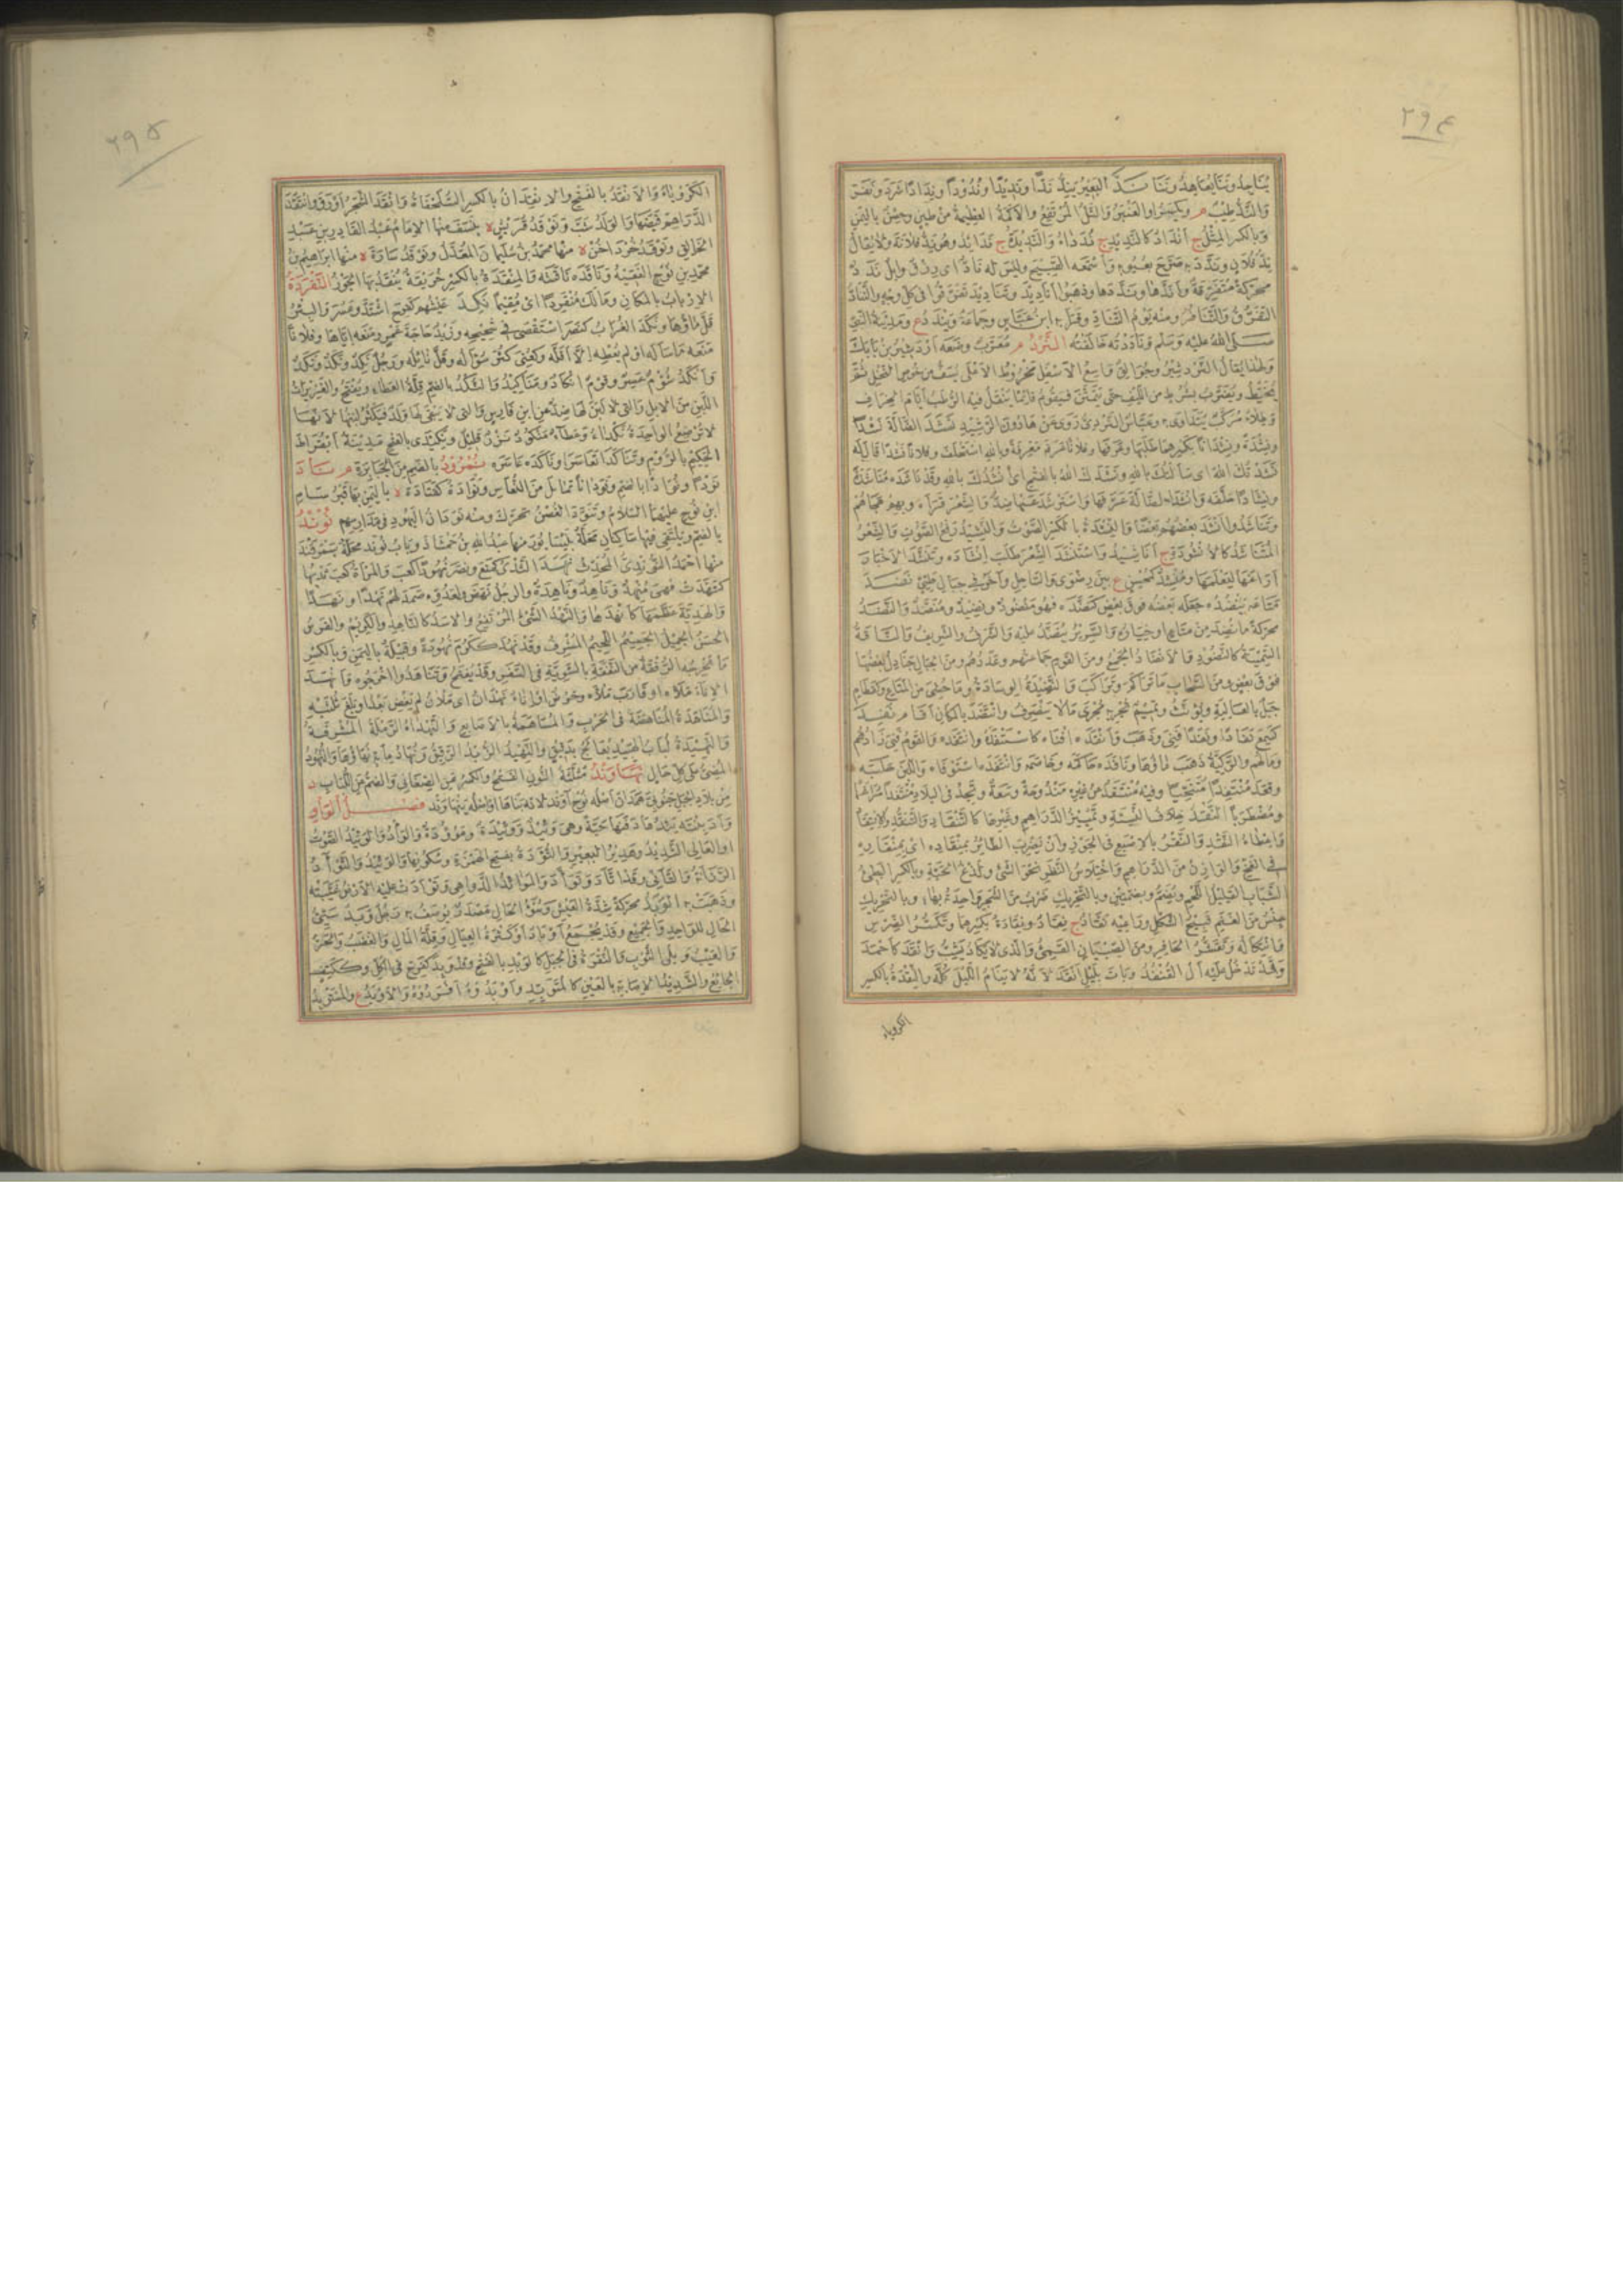 ٢٩٤
يناجد وتنا يعاهد وتنا ندّ البعير يند ندًّا ونديدا وندودا وندادا شرد ونفر
والند طيب م ويكسر او العنبر والتل المرتفع والاكمة العظيمة من طين وحصن باليمن
وبالكسر المثل ج انداد كالنديد ج ندداء والنديدة ج ندائد وهي ند فلانة ولا يقال
ند فلان وندد به صرح بعيوبه واسمعه القبيح وليس له ناد اى رزق وابل ندد
محركة متفرقة واندها وندّدها وذهبوا اناديد وتناديد تفرقوا فى كل وجه والتناد
التفرق والتنافر ومنه يوم التناد وقرا به ابن عباس وجماعة ويندد ع ومدينة النبى
صلى الله عليه وسلم وناددته خالفته النرد م معرب وضعه اردشير بن بابك
ولهذا يقال النردشير وجوالق واسع الاسفل مخروط الاعلى يسف من خوص النخل ثم
يخيط ويعرب بشرط من الليف حتى يتمتن فيقوم قائما ينقل فيه الرطب ايام الخراف
وطلاء مركب يتداوى به وعباس النردى روى عن هارون الرشيد نشد الضالة نشدا
ونشدة ونشدانا بكسرهما طلبها وعرفها وفلانا عرفه معرفة وبالله استحلف وفلانا نشدا قال له
نشدتك الله اى سالتك بالله ونشدك الله بالفتح اى نشدك بالله وقد ناشده مناشدة
ونشادا حلفه وانشد الضالة عرفها واسترشد عنها ضد والشعر قراه وبهم هجاهم
وتناشدوا انشد بعضهم بعضا والنشدة بالكسر الصوت والنشيد رفع الصوت والشعر
المتناشد كالانشودة ج اناشيد واستنشد الشعر طلب انشاده وتنشد الاخبار
اراغها ليعلمها ومنشد كمحسن ع بين رضوى والساحل واخر فى جبال طيئ نضد
متاعه ينضده جعله بعضه فوق بعض كنضده فهو منضود ونضيد ومنضد والنضد
محركة ما نضد من متاع او خياره والسرير ينضد عليه والشرف والشريف والناقة
السمينة كالنضود والانضاد الجمع ومن القوم جماعتهم وعددهم ومن الجبال جنادل بعضها
فوق بعض ومن السحاب ما تراكم وتراكب والنضيدة الوسادة وما حشى من المتاع ونضاد
جبل بالعالية ويؤنث وتميم تجريه مجرى ما لا ينصرف وانتضد بالمكان اقام نفد
كسمع نفادا ونفدا فنى وذهب وانفده افناه كاستنفده وانتفده والقوم فنى زادهم
ومالهم والركية ذهب ماؤها ونافده حاكمه وخاصمه وانتفده استوفاه واللبن حلبه
وقعد منتفدا متنحيا وفيه منتفد عن غيره مندوحة وسعة وتجد فى البلاد منتفدا مراغما
ومضطربا النقد خلاف النسيئة وتمييز الدراهم وغيرها كالتنقاد والتنقد والانتقاد
واعطاء النقد والنقر بالاصبع فى الجوز وان يضرب الطائر بمنقاده اى بمنقاره
فى الفخ والوازن من الدراهم واختلاس النظر نحو الشئ ولدغ الحية وبالكسر البطئ
الشباب القليل اللحم ويضم وبضمتين وبالتحريك ضرب من الشجر واحدته بهاء وبالتحريك
جنس من الغنم قبيح الشكل وراعيه نقاد ج نقاد ونقادة بكسرهما وتكسر الضرس
وائتكاله وتقشر الحافر ومن الصبيان القمئ والذى لا يكاد يشب وانقد كاحمد
وقد تدخل عليه ال القنفذ وبات بليل انقد لانه لا ينام الليل كله والنقدة بالكسر
الكروياء
٢٩٥
الكروياء والانقد بالفتح والانقدان بالكسر السلحفاة وانقد الشجر اورق وانتقد
الدراهم قبضها والولد شب ونوقد قريش ة بنسف منها الامام عبد القادر بن عبد
الخالق ونوقد خرداخن ة منها محمد بن سليمان المعدل ونوقد سازة ة منها ابراهيم بن
محمد بن نوح الفقيه وناقده ناقشه والمنقدة بالكسر خريقة ينقد بها الجوز النقردة
الارباب بالمكان ومالك منقردا اى مقيما نكد عيشهم كفرح اشتد وعسر والبئر
قل ماؤها ونكد الغراب كنصر استقصى فى شحيجه وزيد حاجة عمرو منعه اياها وفلانا
منعه ما ساله او لم يعطه الا اقله وكعنى كثر سؤاله وقل نائله ورجل نكد ونكد ونكد
وانكد شؤم عسر وقوم انكاد ومناكيد والنكد بالضم قلة العطاء ويفتح والغزيرات
اللبن من الابل والتى لا لبن لها ضد عن ابن فارس والتى لا يبقى لها ولد فيكثر لبنها لانها
لا ترضع الواحدة نكداء وعطاء منكود نزر قليل ونكيدى بالفتح مدينة ابقراط
الحكيم بالروم وتناكدا تعاسرا وناكده عاسره نمرود بالضم من الجبابرة م ناد
نودا ونوادا بالضم ونودانا تمايل من النعاس ونوادة كقتادة ة باليمن بها قبر سام
ابن نوح عليهما السلام وتنود الغصن تحرك ومنه نودان اليهود فى مدارسهم نوند
بالضم ويلتقى فيها ساكنان محلة بنيسابور منها عبد الله بن حمشاذ وباب نوند محلة بسمرقند
منها احمد النوندى المحدث نهد الثدى كمنع ونصر نهودا كعب والمراة كعب ثديها
كنهدت فهى منهد وناهد وناهدة والرجل نهض ولعدوه صمد لهم نهدا ونهدا
والهدية عظمها كانهدها والنهد الشئ المرتفع والاسد كالناهد والكريم والفرس
الحسن الجميل الجسيم اللحيم المشرف وقد نهد ككرم نهودة وقبيلة باليمن وبالكسر
ما تخرجه الرفقة من النفقة بالسوية فى السفر وقد يفتح وتناهدوا اخرجوه وانهد
الاناء ملاه او قارب ملاه وحوض او اناء نهدان اى ملان لم يفض بعد او بلغ ثلثيه
والمناهدة المناهضة فى الحرب والمساهمة بالاصابع والنهداء الرملة المشرفة
والنهيدة لباب الهبيد يعالج بدقيق والنهيد الزبد الرقيق ونهاد مائة زهاؤها والنهود
المضى على كل حال نهاوند مثلثة النون الفتح والكسر عن الصغانى والضم عن اللباب د
من بلاد الجبل جنوبى همذان اصله نوح اوند لانه بناها او اصله ينهاوند فصل الواو
واد بنته يئدها دفنها حية وهى وئيد ووئيدة وموؤدة والواد والوئيد الصوت
او العالى الشديد وهدير البعير والتؤدة بفتح الهمزة وسكونها والوئيد والتوآد
الرزانة والتانى وقد اتاد وتواد والموائد الدواهى وتوادت عليه الارض غيبته
وذهبت به الوبد محركة شدة العيش وسوء الحال مصدر يوصف به رجل وبد سيئ
الحال للواحد والجميع وقد يجمع اوبادا وكثرة العيال وقلة المال والغضب والحر
والعيب وبلى الثوب والنقرة فى الجبل كالوبد بالفتح وقد وبد كفرح فى الكل وككتف
الجائع والشديد الاصابة بالعين كالمتوبد واوبدوه افردوه والاوبد ع والمستوبد